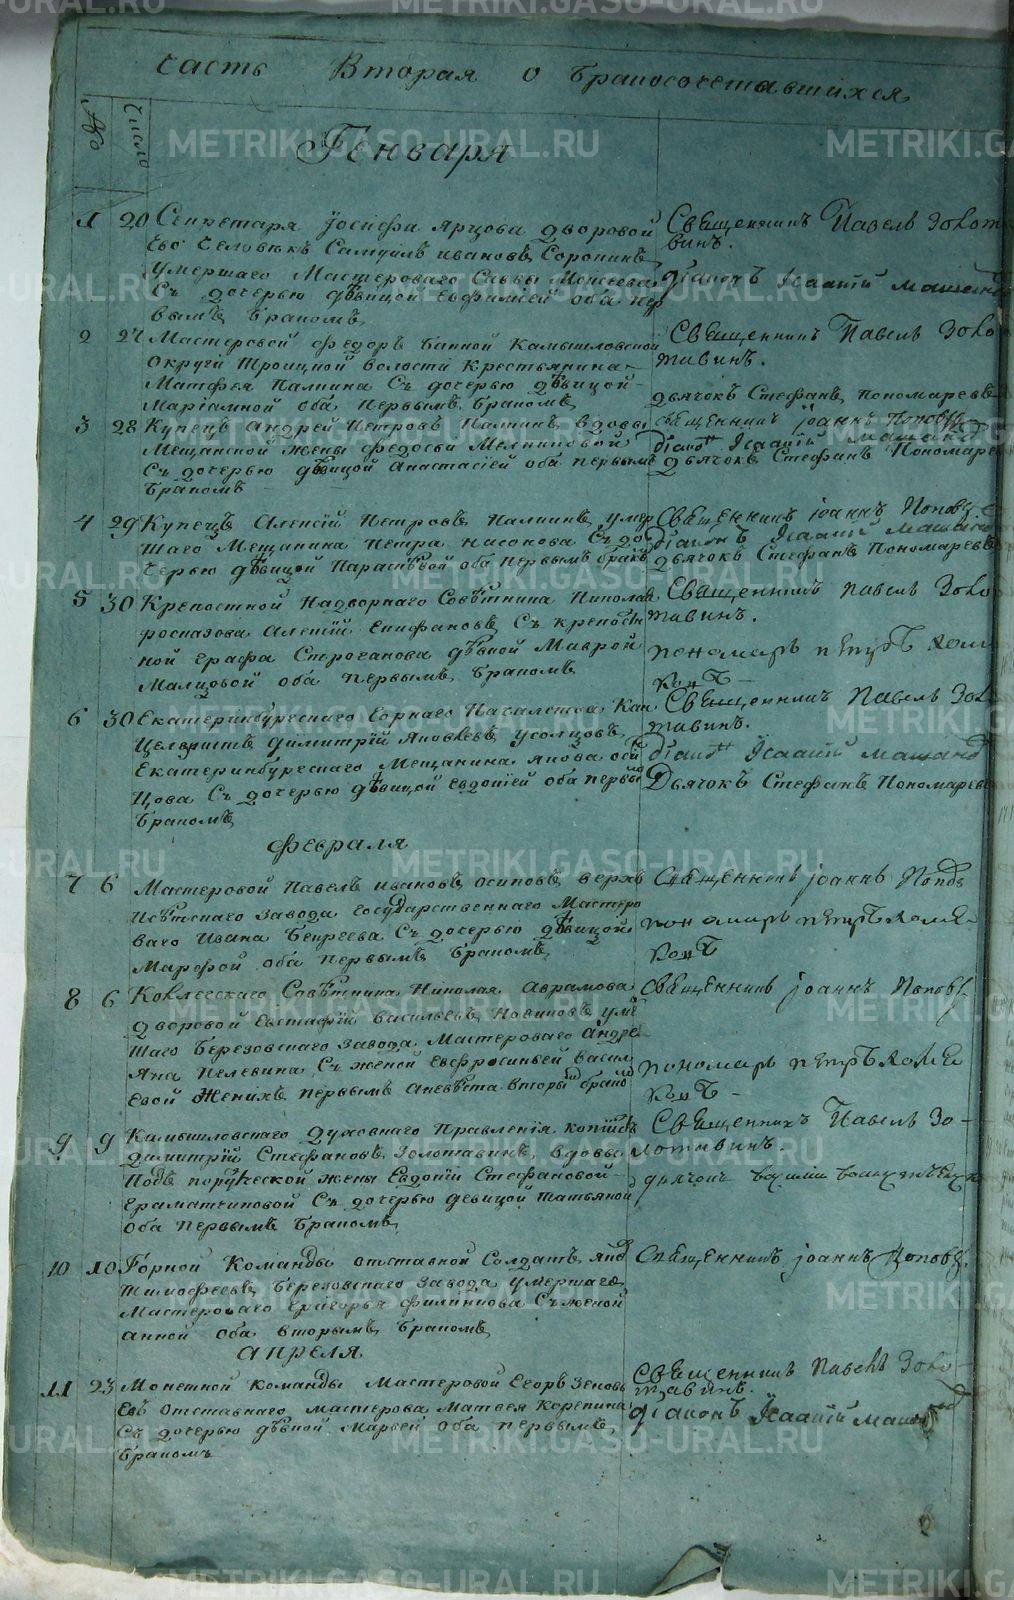 Часть Вторая о Бракосочетавшихся
№ Число
Генваря
1 20 Секретаря Іосифа Ярцова дворовой
Его человѣкъ Самуилъ Ивановъ Сорокинъ
умершаго Мастероваго Саввы Моисеева
Съ дочерью дѣвицой Евфиміей оба пер
вымъ Бракомъ
Священникъ Павелъ Золота
винъ.
Діаконъ Ісаакій
2 27 Мастеровой Федоръ Банной Камышловской
Округи Троицкой волости Крестьянина
Матфея Палкина Съ дочерью дѣвицой
Маріамной оба Первымъ Бракомъ
Священникъ Павелъ Золо
тавинъ.
Дьячокъ Стефанъ Пономаревъ
3 28 Купецъ Андрей Петровъ Палкинъ вдовы
Мещанской жены Федосьи Мелниковой
Съ дочерью дѣвицой Анастасіей оба первымъ
Бракомъ
Священникъ Іоаннъ Поповъ
Діакон Ісаакій
Дьячокъ Стефанъ Пономарев
4 29 Купецъ Алексій Петровъ Палкинъ умер
шаго Мещанина Петра Насонова Съ до
черью дѣвицой Параскевой оба Первымъ бракомъ
Священникъ Іоаннъ Поповъ
Діаконъ Ісаакій
Дьячокъ Стефанъ Пономаревъ
5 30 Крепостной Надворнаго Совѣтника Николая
Алексій Епифановъ Съ крепост
ной Графа Строганова дѣвкой Маврой
Малцовой оба Первымъ Бракомъ
Священникъ Павелъ Золо
тавинъ.
пономарь петръ
6 30 Екатеринбургскаго Горнаго Началства Кан
целяристъ Димитрій Яковлевъ Усолцовъ
Екатеринбургскаго Мещанина Якова
Съ дочерью дѣвицой Евдокіей оба первы
Бракомъ
Священникъ Павелъ Золо
тавинъ.
Діакон Ісаакій
Дьячокъ Стефанъ Пономаревъ
Февраля
7 6 Мастеровой Павелъ Ивановъ Осиповъ Верхъ
Исѣтскаго Завода Государственнаго Мастеро
ваго Ивана Съ дочерью дѣвицой
Марфой оба Первымъ Бракомъ
Священникъ Іоаннъ Поповъ
пономарь петръ
8 6 Коллежскаго Совѣтника Николая Аврамова
дворовой Евстафій Васильевъ Новиковъ умер
шаго Березовскаго Завода Мастероваго Андре
яна Пелевина Съ женой Евфросиньей Васил
евой Женихъ первымъ Аневѣста вторымъ браком
Священникъ Іоаннъ Поповъ
пономарь петръ
9 9 Камышловскаго Духовнаго Правленія копіистъ
Димитрій Стефановъ Золотавинъ, вдовы
Подъ порутческой жены Евдокіи Стефановой
Съ дочерью девицой Татьяной
оба первымъ Бракомъ
Священникъ Павелъ Зо-
лотавинъ.
дьячокъ
10 10 Горной Команды отставной Солдатъ
Тимофеевъ Березовскаго Завода умершаго
Мастероваго Григорья Филиппова Съ женой
Анной оба вторымъ Бракомъ
Священникъ Іоаннъ Поповъ.
Апреля
11 23 Монетной Команды Мастеровой Егоръ Зеновь
евъ Отставнаго мастерова Матвея Корепина
Съ дочерью дѣвкой Марьей оба первымъ
Бракомъ
Священникъ Павелъ Золо-
тавинъ.
Діаконъ Ісаакій
METRIKI.GASO-URAL.RU